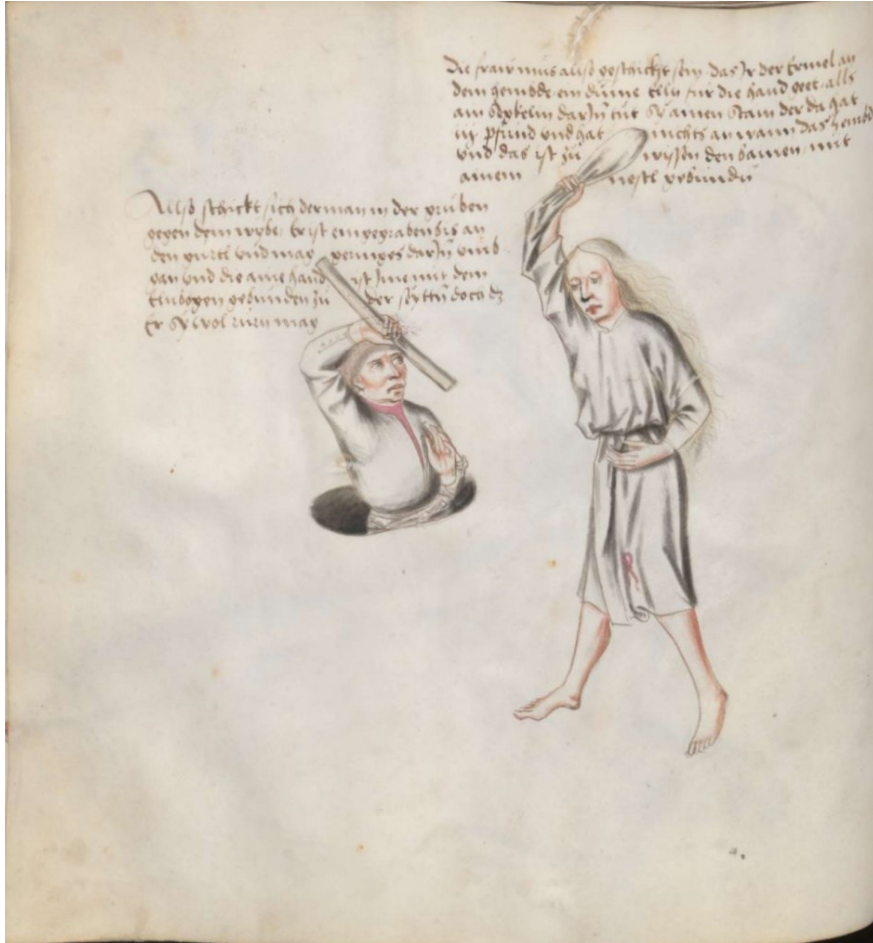 Die fraw mus allso geschickt sein das Ir der Ermel an
dem hemdde ein dünne elln für die hand geet alls
ain Seckelin darIn tüt sÿ ainen Stain der da hat
iij pfund vnd hat nichts an wann das hembd
vnd das ist zü wissen den bainen mit
ainem nestl gebunden
Allso schickt sich der man in der gruben
gegen dem wybe Er ist eingegraben bis an
den gurtl vnd mag geringes darIn vmb
gan vnd die aine hand ist Ime mit dem
Elnbogen gebunden zü der sÿttn doch dz
Er sÿ wol ruren mag